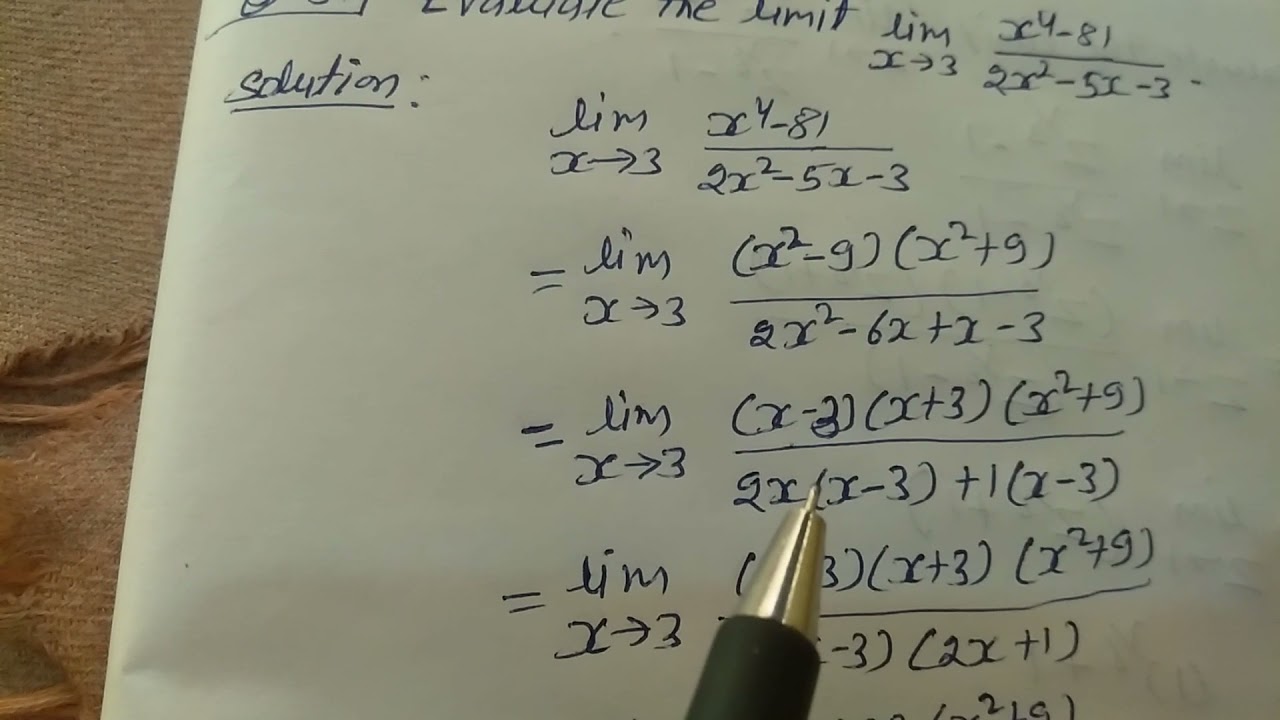 Evaluate the limit lim x→3 x⁴-81 / 2x²-5x-3 .
Solution:
lim x→3 x⁴-81 / 2x²-5x-3
= lim x→3 (x²-9)(x²+9) / 2x²-6x+x-3
= lim x→3 (x-3)(x+3)(x²+9) / 2x(x-3)+1(x-3)
= lim x→3 ( 3)(x+3)(x²+9) / -3)(2x+1)
(x²+9)